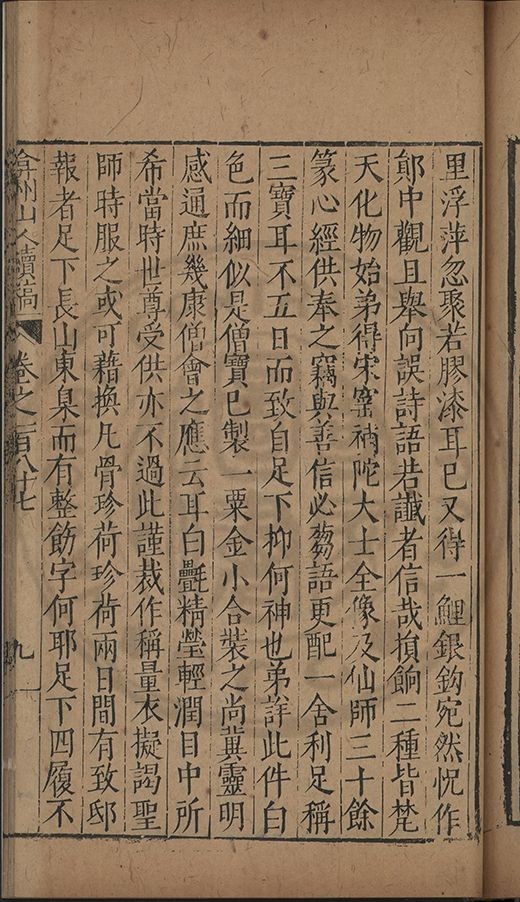 里浮萍忽聚若膠漆耳已又得一鯉銀鈎宛然怳作
鄖中觀且舉向誤詩語若讖者信哉損餉二種皆梵
天化物始弟得宋窰補陀大士全像及仙師三十餘
篆心經供奉之竊與善信必蒭語更配一舍利足稱
三寶耳不五日而致自足下抑何神也弟詳此件白
色而細似是僧寶已製一粟金小合裝之尚冀靈明
感通庶幾康僧會之應云耳白㲲精瑩輕潤目中所
希當時世尊受供亦不過此謹裁作稱量衣擬謁聖
師時服之或可藉換凡骨珍荷珍荷兩日間有致邸
報者足下長山東臬而有整飭字何耶足下四履不
弇州山人續稿 卷之一百八十七 九